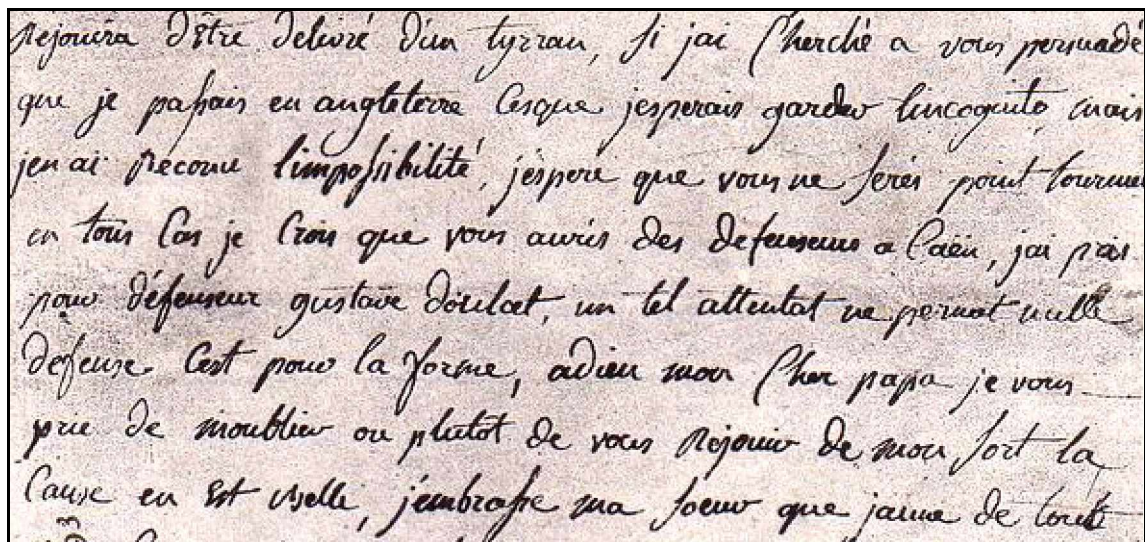 Rejouira d'Être delivré d'un tyrran, si jai Cherché a vous persuadé
que je passais en angleterre Cesque jesperais garder lincognito, mais
jen ai Reconu l'impossibilité, j'éspere que vous ne serés point tourme
en tous Cas je Crois que vous aurés des defenseurs a Caën, jai pris
pour défenseur gustave doulcet, un tel attentat ne permet nulle
defense Cest pour la forme, adieu mon Cher papa je vous
prie de moublier ou plutot de vous Rejouir de mon sort la
Cause en Est belle, j'embrasse ma soeur que jaime de tout